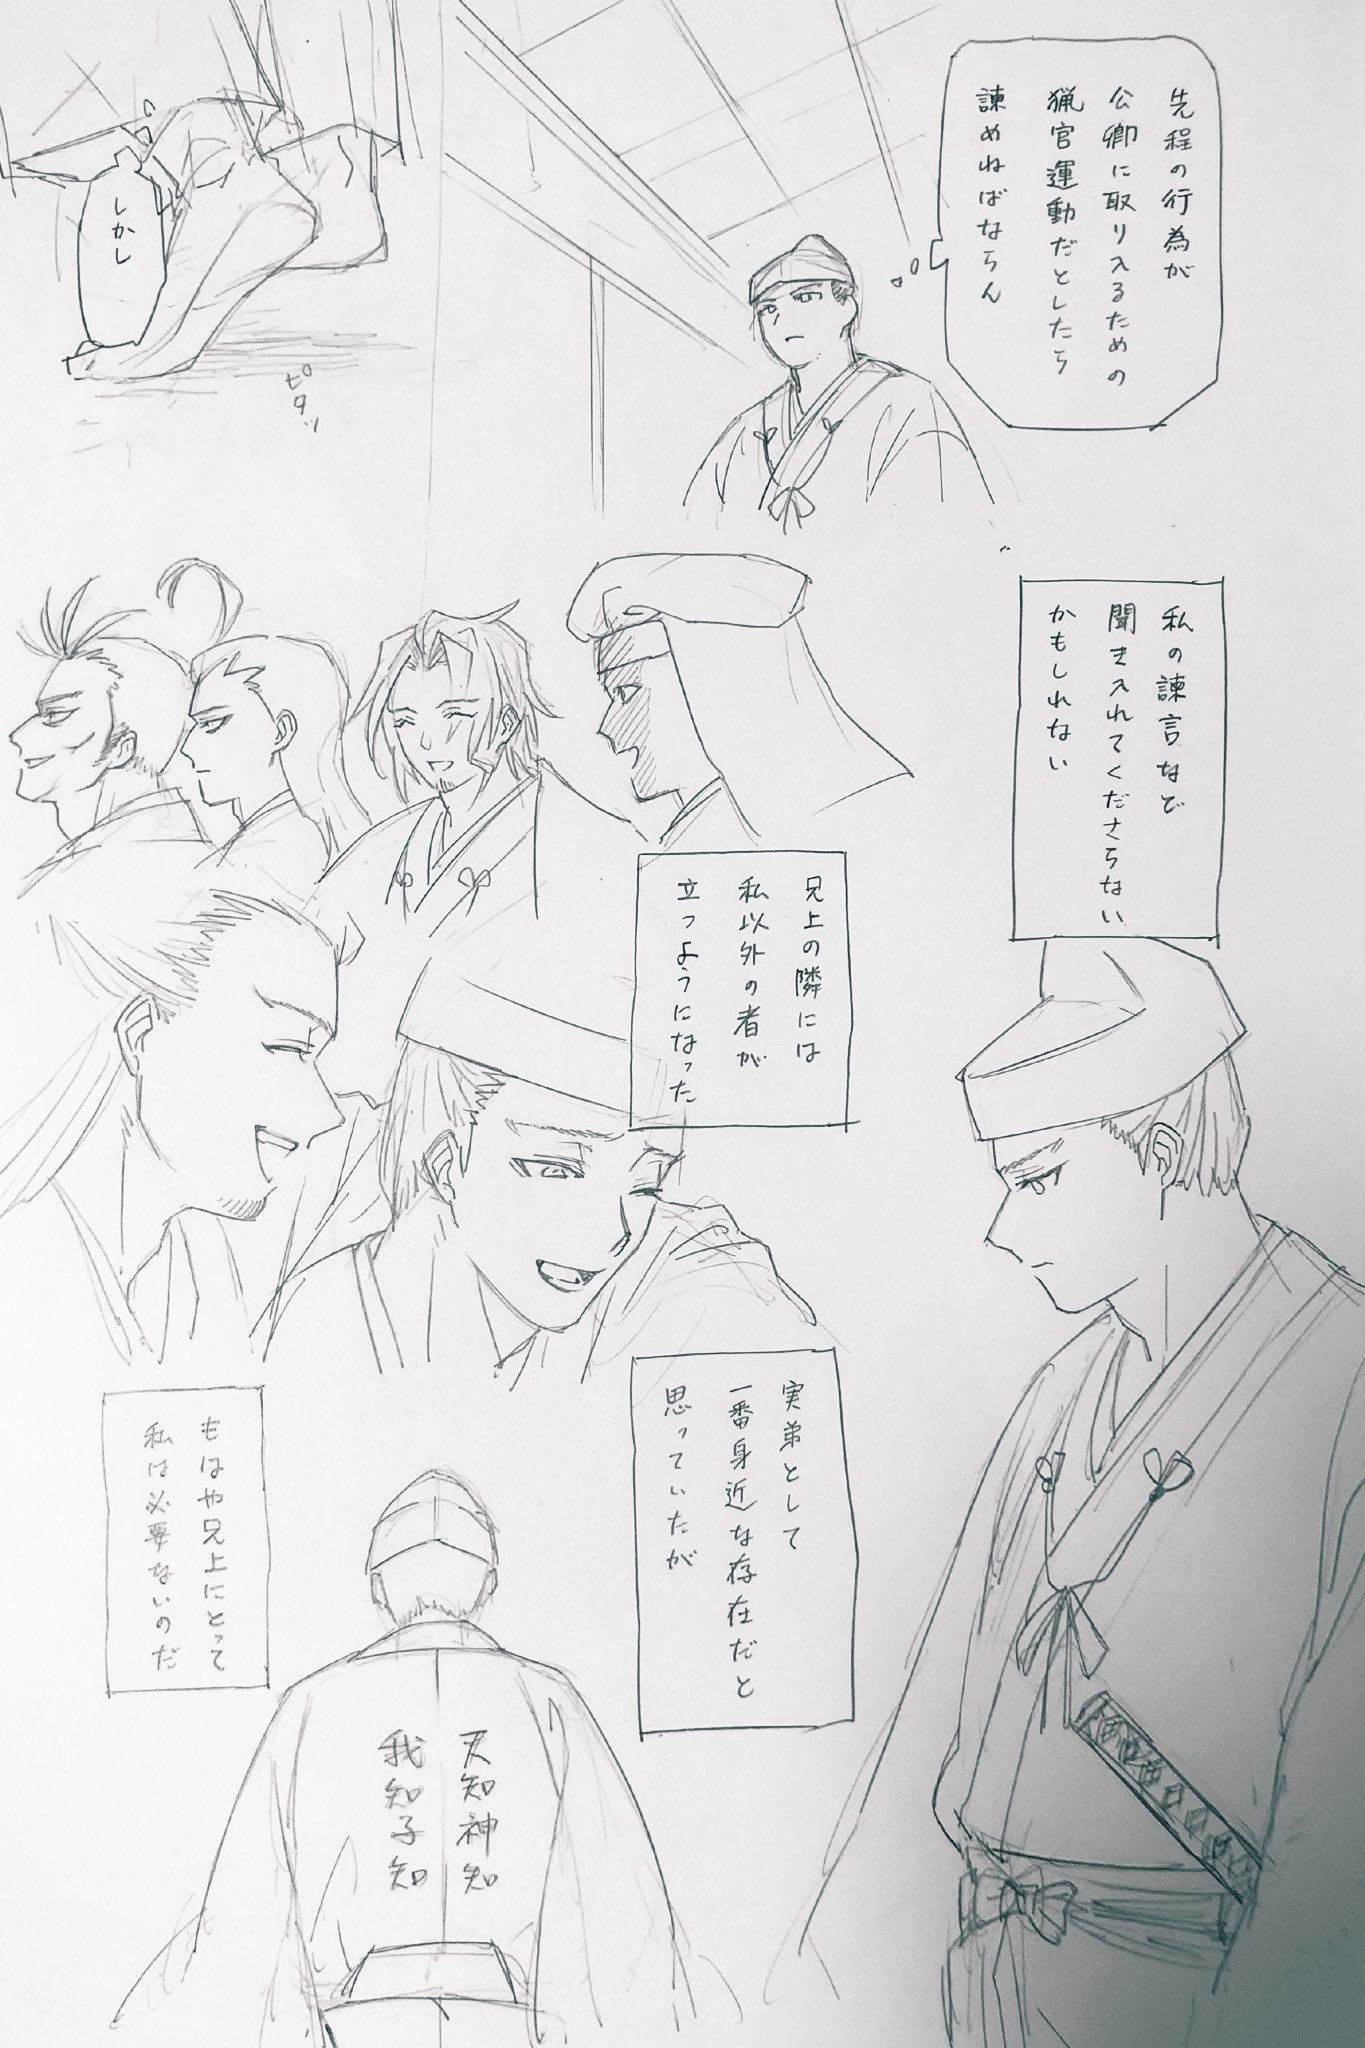 先程の行為が
公卿に取り入るための
猟官運動だとしたら
諫めねばならん
しかし
ピタッ
私の諫言など
聞き入れてくださらない
かもしれない
兄上の隣には
私以外の者が
立つようになった
実弟として
一番身近な存在だと
思っていたが
もはや兄上にとって
私は必要ないのだ
天知神知
我知子知